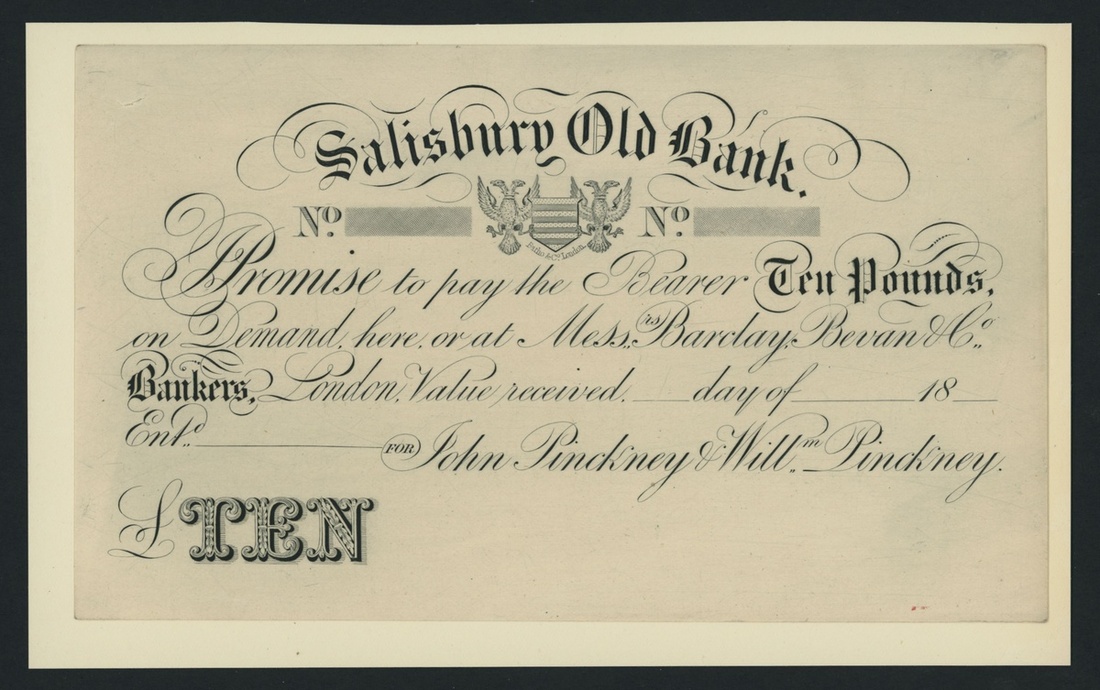 Salisbury Old Bank.
No. No.
& Co. London.
I Promise to pay the Bearer Ten Pounds,
on Demand, here, or at Messrs. Barclay, Bevan & Co.
Bankers, London, Value received. day of 18
Entd. FOR John Pinckney & Willm. Pinckney.
£ TEN